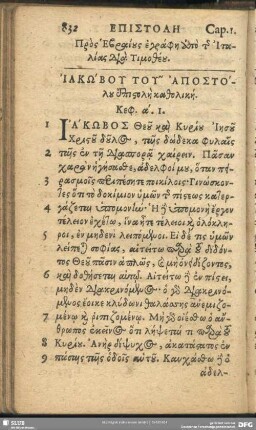 832 ΕΠΙΣΤΟΛΗ Cap.1.
Πρὸς Ἑβραίους ἐγράφη ἀπὸ τῆς Ἰτα-
λίας διὰ Τιμοθέου.
ἸΑΚΏΒΟΥ ΤΟΥ͂ ἈΠΟΣΤΌ-
λου ἐπιστολὴ καθολική.
Κεφ. α΄. 1.
1 ἸΆΚΩΒΟΣ Θεοῦ καὶ Κυρίου Ἰησοῦ
Χριστοῦ δοῦλος, ταῖς δώδεκα φυλαῖς
2 ταῖς ἐν τῇ διασπορᾷ χαίρειν. Πᾶσαν
χαρὰν ἡγήσασθε, ἀδελφοί μου, ὅταν πει-
3 ρασμοῖς περιπέσητε ποικίλοις· Γινώσκον-
τες ὅτι τὸ δοκίμιον ὑμῶν τῆς πίστεως κατερ-
4 γάζεται ὑπομονήν· Ἡ δὲ ὑπομονὴ ἔργον
τέλειον ἐχέτω, ἵνα ἦτε τέλειοι καὶ ὁλόκλη-
5 ροι, ἐν μηδενὶ λειπόμενοι. Εἰ δέ τις ὑμῶν
λείπεται σοφίας, αἰτείτω παρὰ τοῦ διδόν-
τος Θεοῦ πᾶσιν ἁπλῶς, καὶ μὴ ὀνειδίζοντος,
6 καὶ δοθήσεται αὐτῷ. Αἰτείτω δὲ ἐν πίστει,
μηδὲν διακρινόμενος· ὁ γὰρ διακρινό-
μενος ἔοικε κλύδωνι θαλάσσης ἀνεμιζο-
7 μένῳ καὶ ῥιπιζομένῳ. Μὴ γὰρ οἰέσθω ὁ ἄν-
θρωπος ἐκεῖνος ὅτι λήψεταί τι παρὰ τοῦ
8 Κυρίου. Ἀνὴρ δίψυχος, ἀκατάστατος ἐν
9 πάσαις ταῖς ὁδοῖς αὐτοῦ. Καυχάσθω δὲ ὁ
ἀδελ-
SLUB
DFG